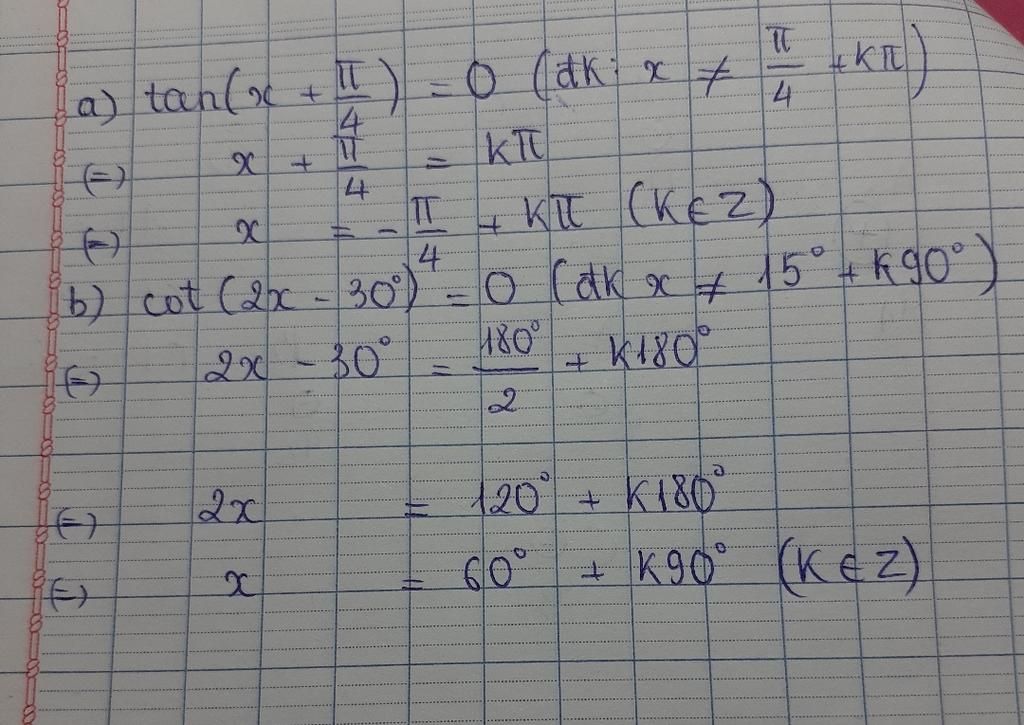 a) tan(x + π/4) = 0 (đk: x ≠ π/4 + kπ)
(=) x + π/4 = kπ
(=) x = - π/4 + kπ (K ∈ Z)
b) cot (2x - 30°) = 0 (đk x ≠ 15° + K90°)
(=) 2x - 30° = 180°/2 + K180°
(=) 2x = 120° + K180°
(=) x = 60° + K90° (K ∈ Z)